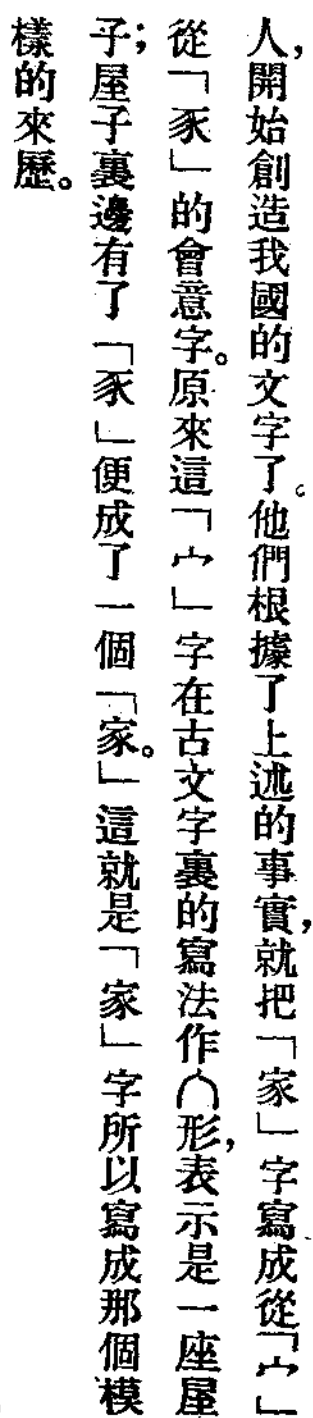 人，開始創造我國的文字了。他們根據了上述的事實，就把「家」字寫成從「宀」
從「豕」的會意字。原來這「宀」字在古文字裏的寫法作∩形，表示是一座屋
子；屋子裏邊有了「豕」便成了一個「家。」這就是「家」字所以寫成那個模
樣的來歷。